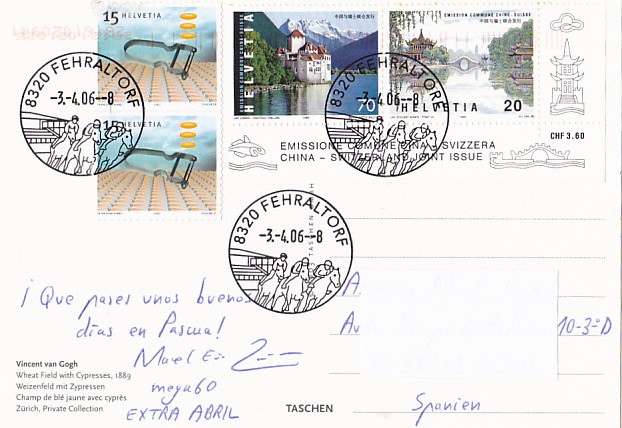 15 HELVETIA
15 HELVETIA
HELVETIA
中国与瑞士联合发行
70
EMISSION COMMUNE CHINE-SUISSE
中国与瑞士联合发行
HELVETIA 20
CHF 3.60
EMISSIONE COMUNE CINA-SVIZZERA
CHINA – SWITZERLAND JOINT ISSUE
8320 FEHRALTORF
-3.-4.06--8
8320 FEHRALTORF
-3.-4.06--8
8320 FEHRALTORF
-3.-4.06--8
TASCHEN
¡ Que pases unos buenos
días en Pascua!
mega60
EXTRA ABRIL
A
Av
10-3º D
Spanien
Vincent van Gogh
Wheat Field with Cypresses, 1889
Weizenfeld mit Zypressen
Champ de blé jaune avec cyprès
Zürich, Private Collection
TASCHEN